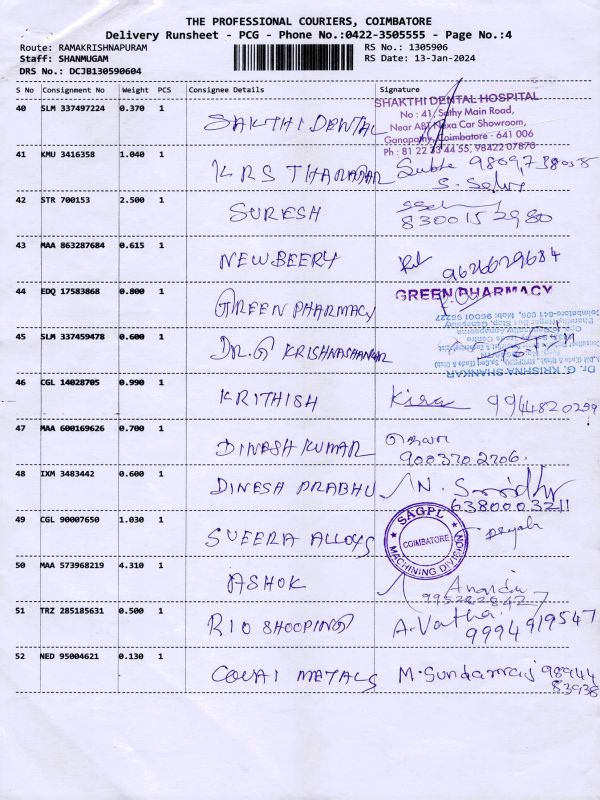 THE PROFESSIONAL COURIERS, COIMBATORE
Delivery Runsheet - PCG - Phone No.:0422-3505555 - Page No.:4
Route: RAMAKRISHNAPURAM RS No.: 1305906
Staff: SHANMUGAM RS Date: 13-Jan-2024
DRS No.: DCJB130590604
S No Consignment No Weight PCS Consignee Details Signature
40 SLM 337497224 0.370 1 SAKTHI DENTAL
SHAKTHI DENTAL HOSPITAL
No : 41, Sathy Main Road,
Near ABT Maxa Car Showroom,
Ganapathy, Coimbatore - 641 006
Ph : 81 22 33 44 55, 98422 07870
41 KMU 3416358 1.040 1 KRS THARMAR
42 STR 700153 2.500 1 SURESH 8300152980
43 MAA 863287684 0.615 1 NEWBEERY 9626029684
44 EDQ 17583868 0.800 1 GREEN PHARMACY GREEN PHARMACY
45 SLM 337459478 0.600 1 DR.G KRISHNASHANKAR
Dr. G. KRISHNA SHANKAR
46 CGL 14028705 0.990 1 KRITHISH Kira 9944820299
47 MAA 600169626 0.700 1 DINESH KUMAR
9003702706.
48 IXM 3483442 0.600 1 DINESH PRABHU
6380003211
49 CGL 90007650 1.030 1 SUEERA ALLOYS
SAGPL
COIMBATORE
MACHINING DIVISION
50 MAA 573968219 4.310 1 ASHOK Anandu
51 TRZ 285185631 0.500 1 RIO SHOOPING A.Vatha
9994919547
52 NED 95004621 0.130 1 COVAI METALS M.Sundarraj 98944
83938